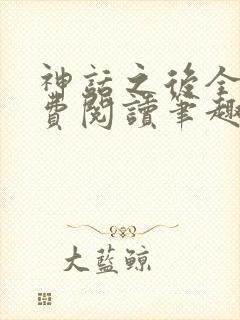 神話之後全
費閱讀筆趣
大藍鯨